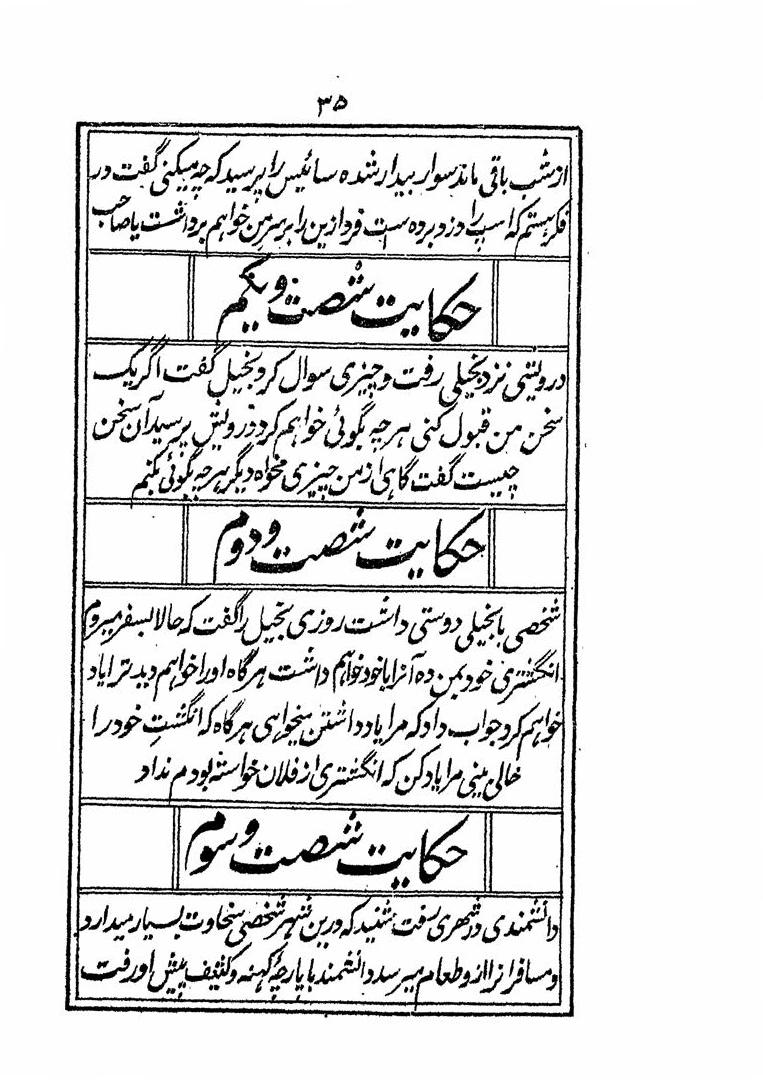 ۳۵
از شب باقی ماند سوار بیدار شده سائیس را پرسید که چه میکنی گفت در
فکر هستم که اسپ را دزد برده است فردا زین را بر سر من خواهم برداشت یا صاحب
حکایت شصت و یکم
درویشی نزد بخیلی رفت و چیزی سوال کرد بخیل گفت اگر یک
سخن من قبول کنی هر چه بگوئی خواهم کرد درویش پرسید آن سخن
چیست گفت گاهی از من چیزی مخواه دیگر هر چه بگوئی بکنم
حکایت شصت و دوم
شخصی با بخیلی دوستی داشت روزی بخیل را گفت که حالا بسفر میروم
انگشتری خود بمن ده آنرا با خود خواهم داشت هر گاه اورا خواهم دید ترا یاد
خواهم کرد جواب داد که مرا یاد داشتن میخواهی هر گاه که انگشتِ خود را
خالی بینی مرا یاد کن که انگشتری از فلان خواسته بودم نداد
حکایت شصت و سوم
دانشمندی در شهری رفت شنید که درین شهر شخصی سخاوت بسیار میدارد
و مسافرانرا از و طعام میرسد دانشمند با پارچهٔ کهنه و کثیف پیش او رفت